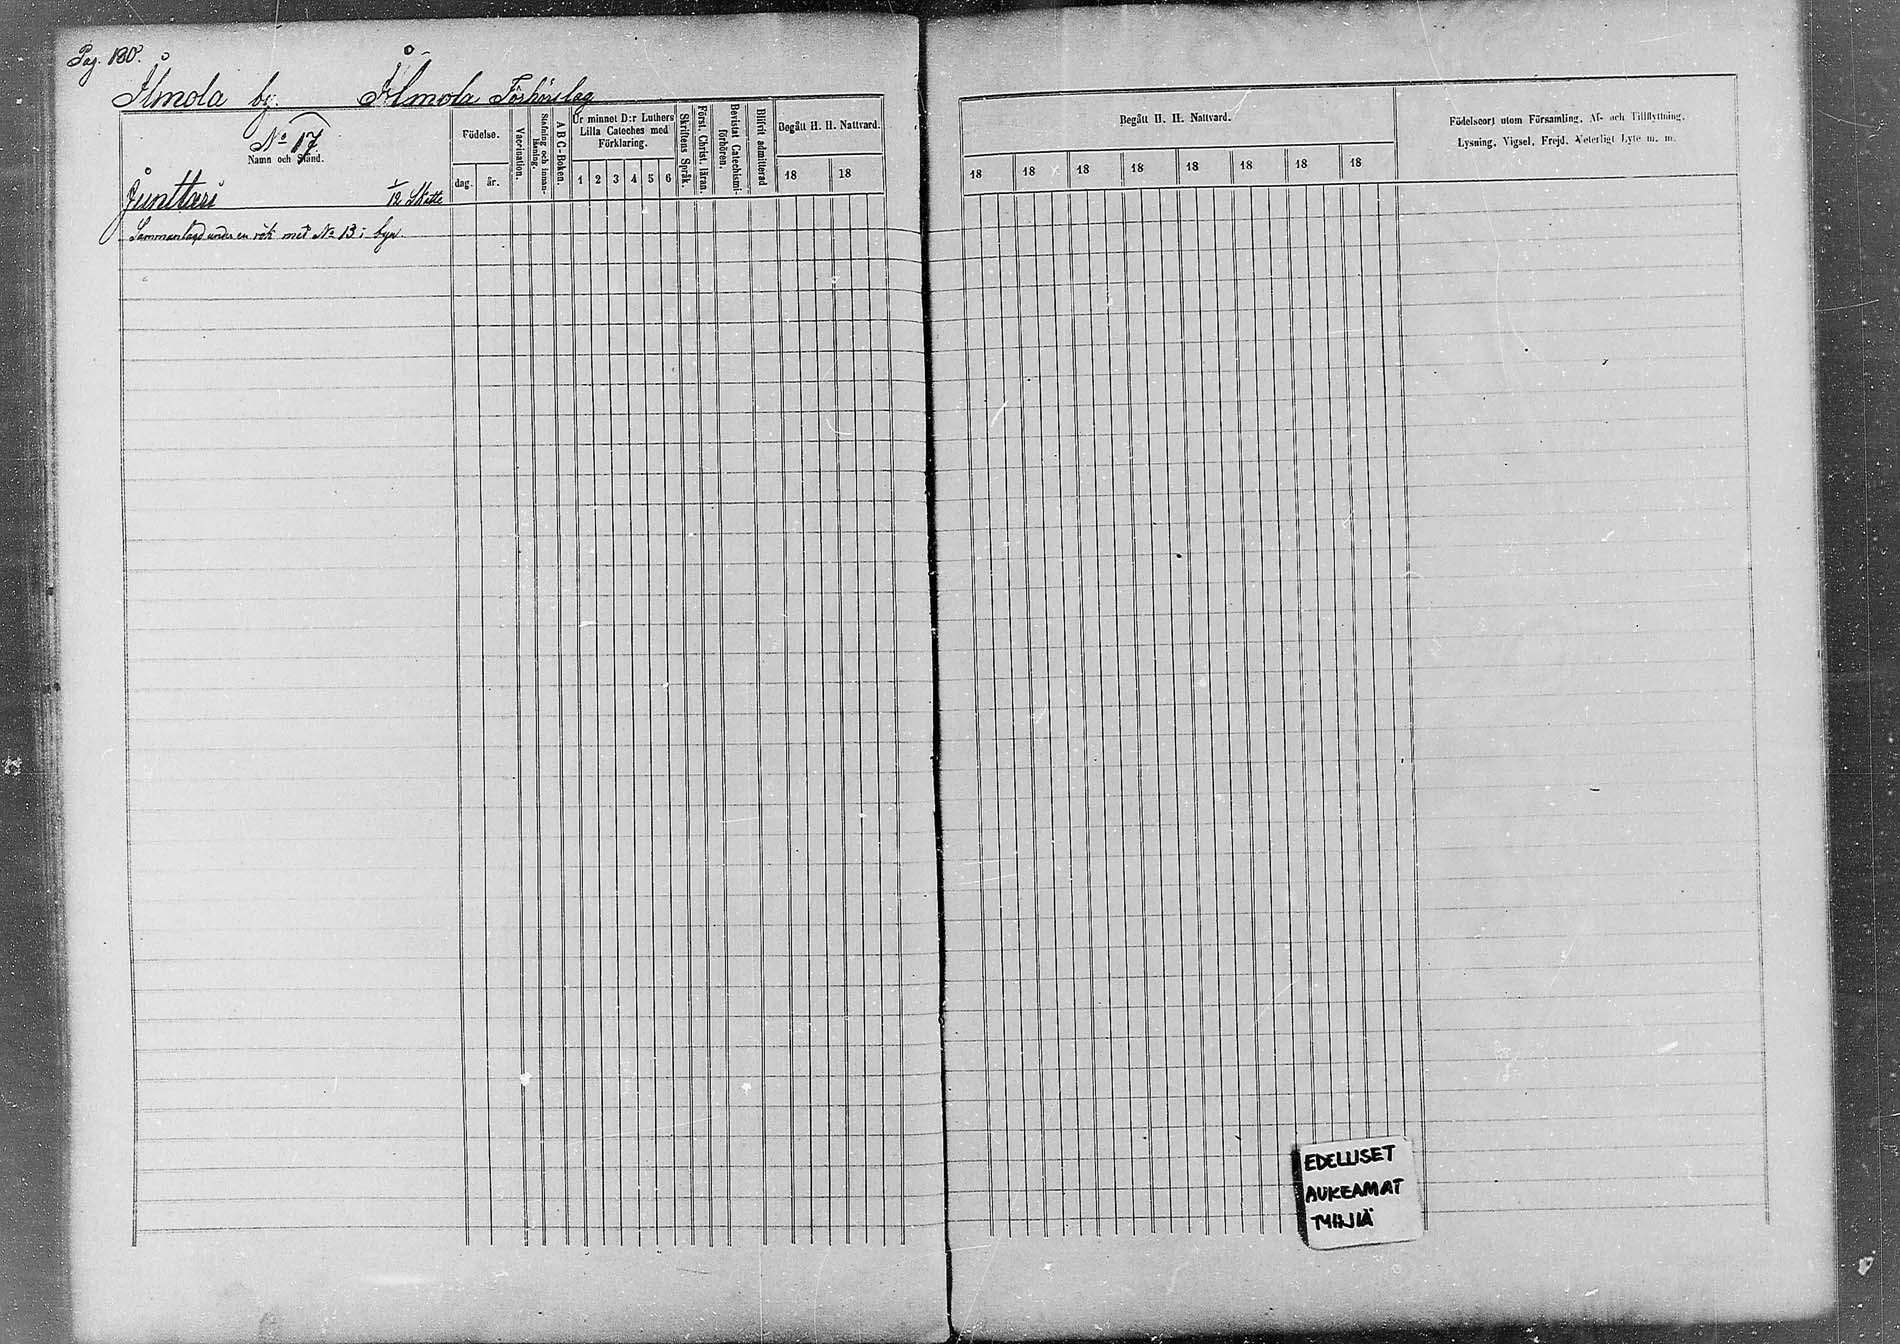 Pag. 180.
Ålmola by. Ålmola Förhörslag
No 17
Namn och Stånd.
Junttari 1/12 Skatte
Sammanlagd under en rök med No 13 i byn.
Födelse.
dag. år.
Vaccination.
Stafning och innan-läsning.
A B C-Boken.
Ur minnet D:r Luthers
Lilla Cateches med
Förklaring.
1 2 3 4 5 6
Skriftens Språk.
Först. Christ. läran.
Bevistat Catechismi-
förhören.
Blifvit admitterad
Begått H. H. Nattvard.
18 18
Begått H. H. Nattvard.
18 18 18 18 18 18 18 18
Födelseort utom Församling, Af- och Tillflyttning,
Lysning, Vigsel, Frejd, Veterligt Lyte m. m.
EDELLISET
AUKEAMAT
TYHJIÄ